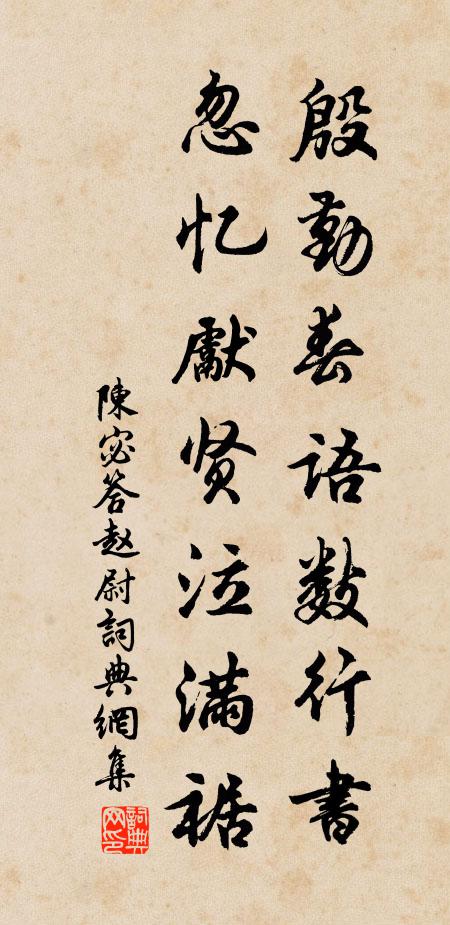 殷勤春语数行书
忽忆獻贤泣满裾
陳宓答赵尉詞典網集
詞典
网印